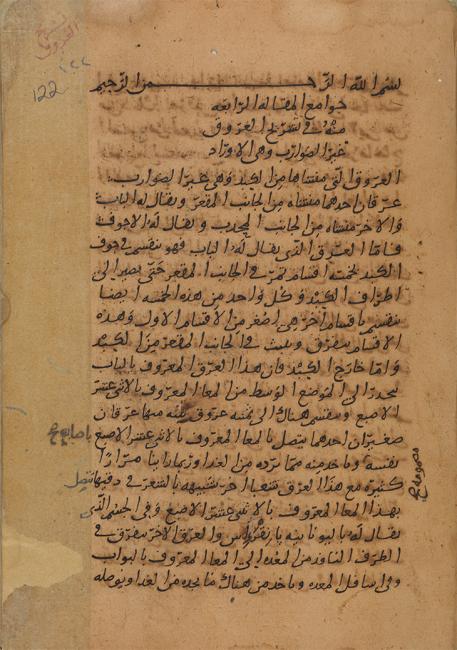 تشريح
العروق
١٢٢
122
بسم الله الرحمن الرحيم
جوامع المقاله الرابعه
منه في تشريح العروق
غير الضوارب وهي الاوراد
العروق التي منشاها من الكبد وهي غير الضوارب
عرقان احدهما منشاه من الجانب المقعر ويقال له الباب
والاخر منشاه من الجانب المحدب ويقال له الاجوف
فاما العرق الذي يقال له الباب فهو ينقسم في جوف
الكبد بخمسة اقسام تمر في الجانب المقعر حتى يصير الى
اطراف الكبد وكل واحد من هذه الخمسة ايضا
ينقسم باقسام اخر هي اصغر من الاقسام الاول وهذه
الاقسام تتفرق وتنبث في الجانب المقعر من الكبد
واما خارج الكبد فان هذا العرق المعروف بالباب
ينحدر الى الموضع الوسط من المعا المعروف بالاثني عشر
الاصبع وينقسم هناك الى ثمنية عروق ثمنه منها عرقان
صغيران احدهما يتصل بالمعا المعروف بالاثني عشر الاصبع
نفسه وياخذ منه مما يرده من الغذا وربما راينا مرارا
كثيره مع هذا العرق شعبا اخر شبيهه بالشعر في دقتها تتصل
بهذا المعا المعروف بالاثني عشر الاصبع وفي الجسم الذي
يقال له باليونانيه بانقراس والعرق الاخر يتفرق في
الطرف النافذ من المعده الى المعا المعروف بالبواب
وفي اسافل المعده وياخذ من هناك ما يجده من الغذا ويوصله